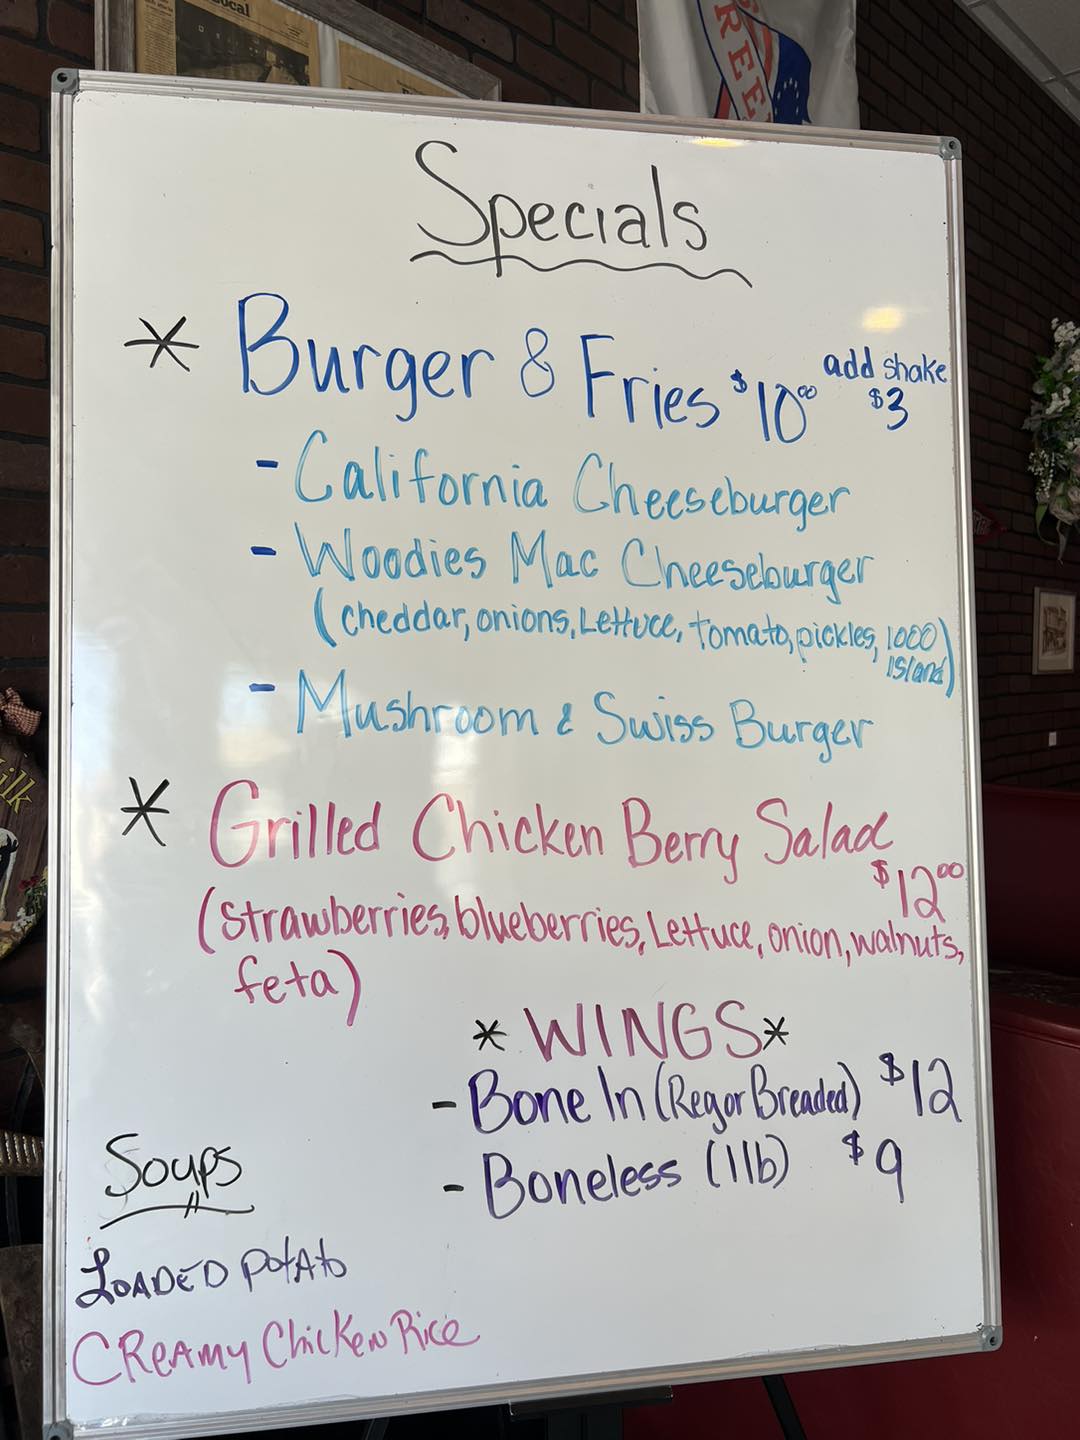 Local
FREE
Specials
* Burger & Fries $10.00 add shake $3
- California Cheeseburger
- Woodies Mac Cheeseburger
(cheddar, onions, Lettuce, tomato, pickles, 1000 Island)
- Mushroom & Swiss Burger
* Grilled Chicken Berry Salad
$12.00
(strawberries, blueberries, Lettuce, onion, walnuts,
feta)
* WINGS *
- Bone In (Reg or Breaded) $12
- Boneless (1lb) $9
Soups
LOADED POTATO
CREAMY ChicKeN Rice